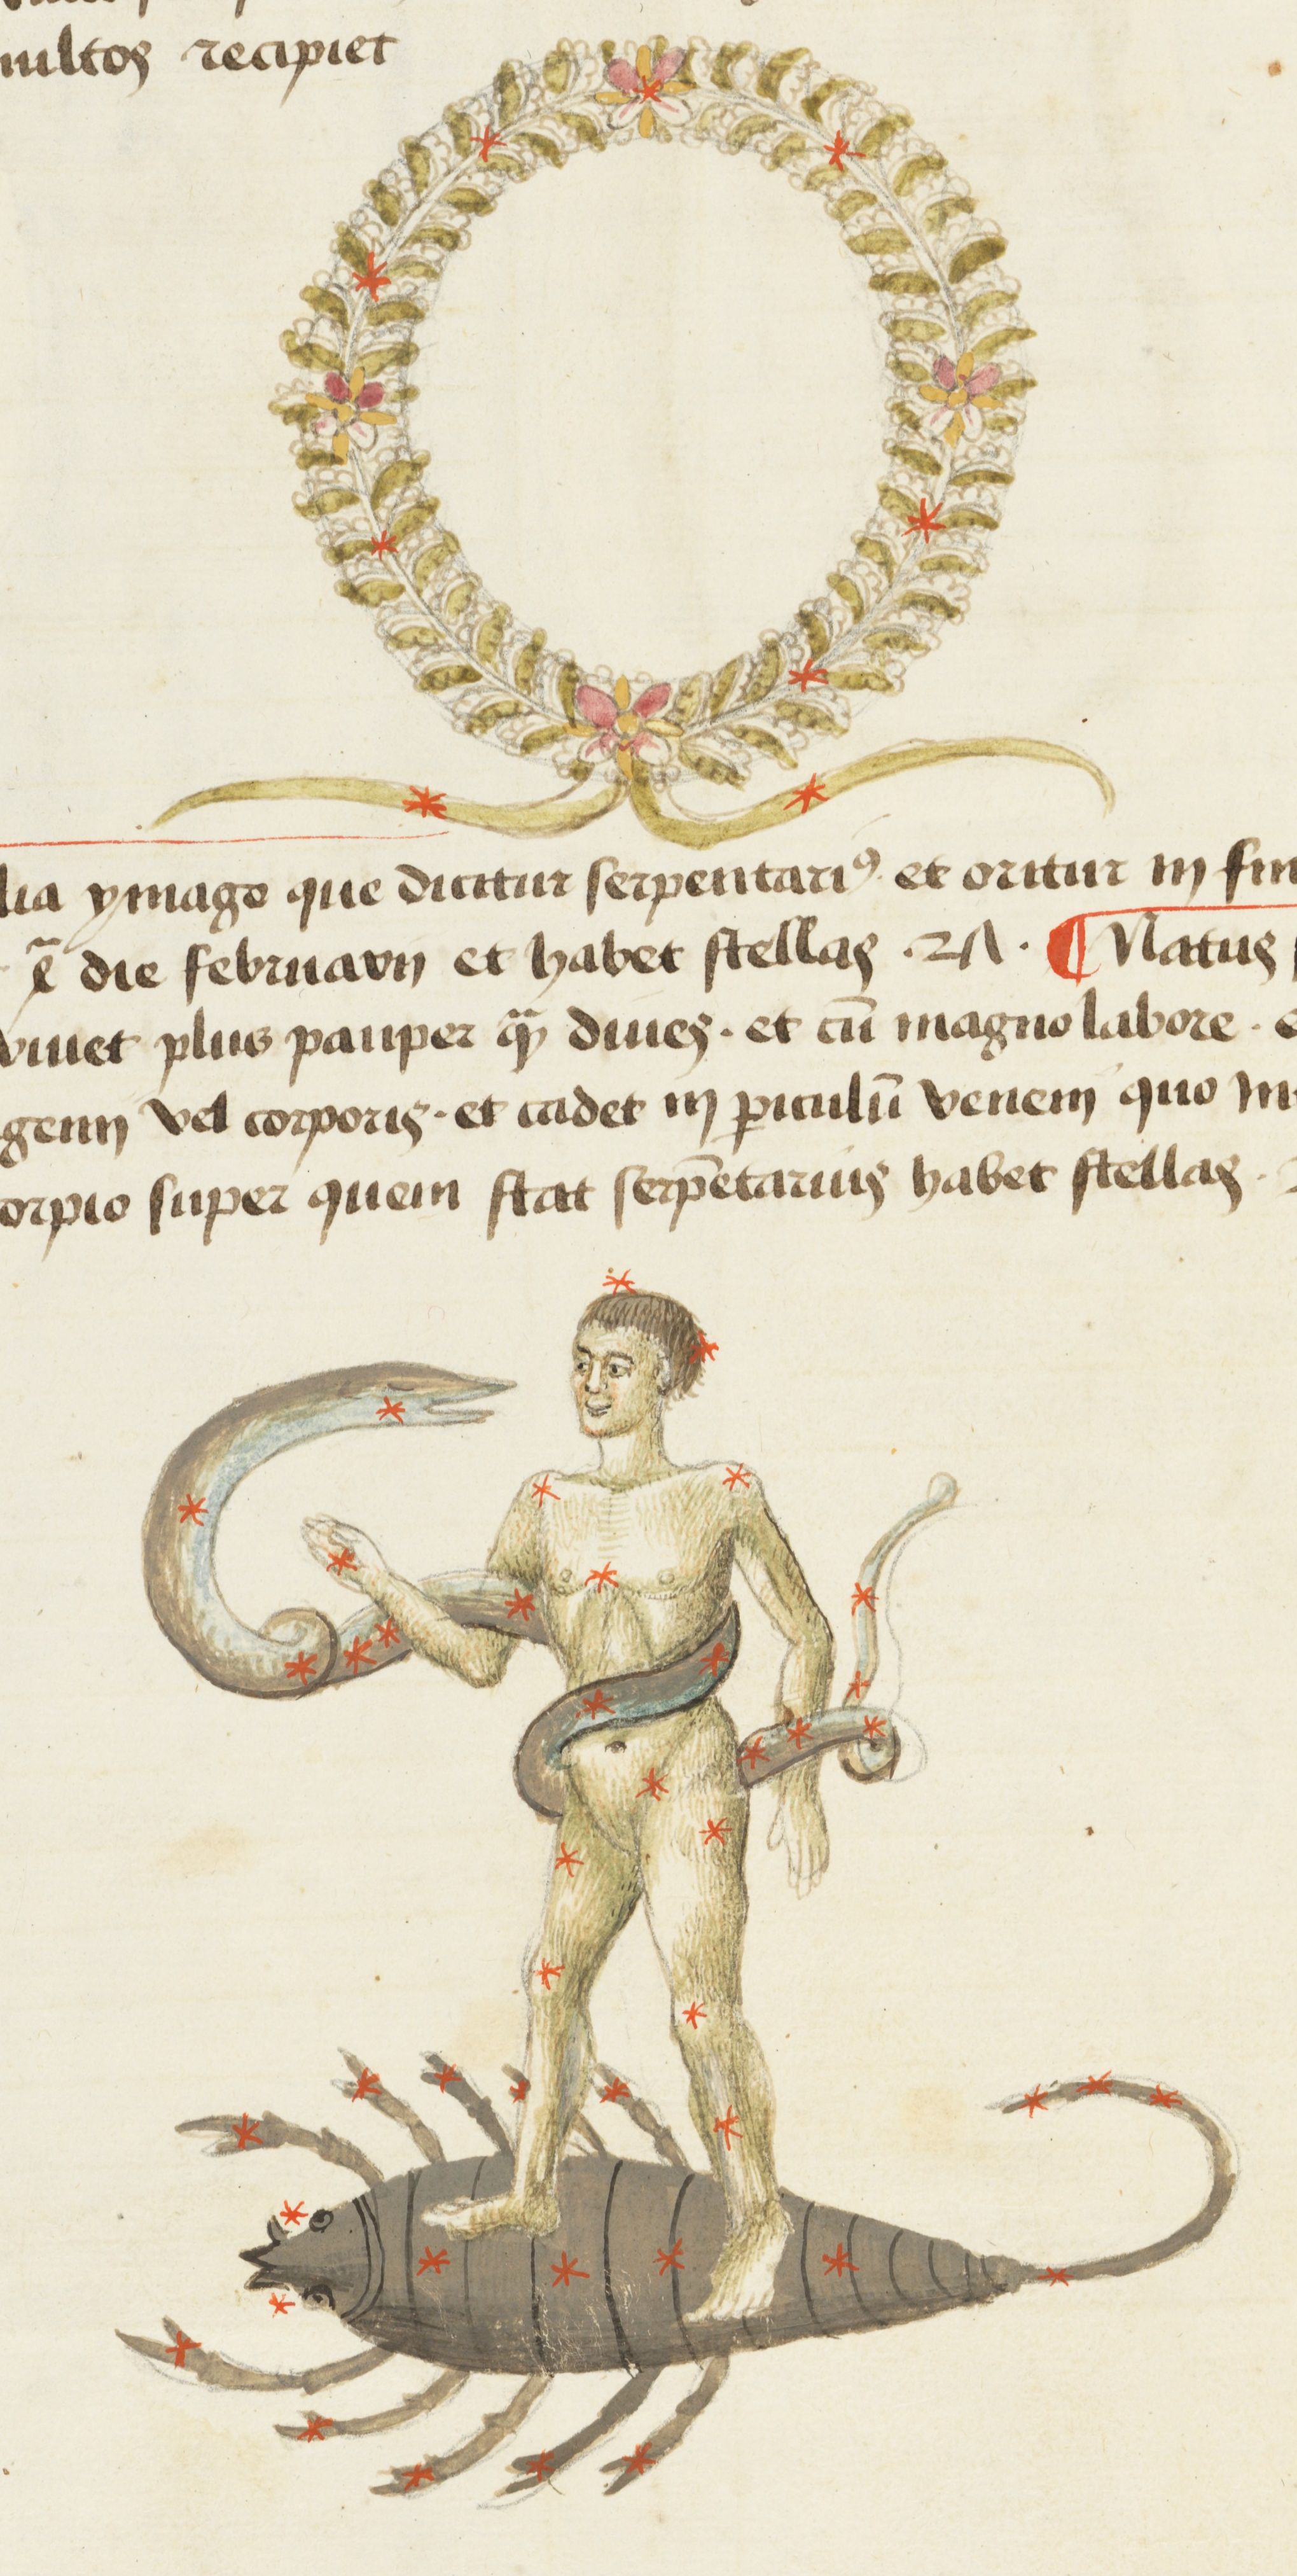 multos recipiet
lia ymago que dicitur serpentari⁹ et oritur in fin
· x̃ die februarij et habet stellas · 24 · ¶ Natus
viuet plus pauper qͣ̃ diues · et cū magno labore · e
genij vel corporis · et cadet in ꝑiculū veneni quo
orpio super quem stat serpētarius habet stellas ·